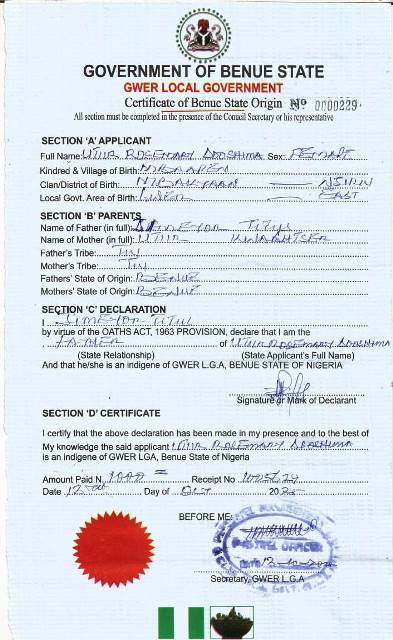 GOVERNMENT OF BENUE STATE
GWER LOCAL GOVERNMENT
Certificate of Benue State Origin No 0000229
All section must be completed in the presence of the Council Secretary or his representative
SECTION 'A' APPLICANT
Full Name: UTIIR ROSEMARY DOOSHIMA Sex: FEMALE
Kindred & Village of Birth:
Clan/District of Birth:
Local Govt. Area of Birth: GWER EAST
SECTION 'B' PARENTS
Name of Father (in full): TITUS
Name of Mother (in full): UTIIR
Father's Tribe: TIV
Mother's Tribe: TIV
Fathers' State of Origin: BENUE
Mothers' State of Origin: BENUE
SECTION 'C' DECLARATION
I TITUS
by virtue of the OATHS ACT, 1963 PROVISION, declare that I am the
FATHER of UTIIR ROSEMARY DOOSHIMA
(State Relationship) (State Applicant's Full Name)
And that he/she is an indigene of GWER L.G.A, BENUE STATE OF NIGERIA
Signature or Mark of Declarant
SECTION 'D' CERTIFICATE
I certify that the above declaration has been made in my presence and to the best of
My knowledge the said applicant UTIIR ROSEMARY DOOSHIMA
is an Indigene of GWER LGA, Benue State of Nigeria
Amount Paid N. 1000= Receipt No
Date 12th Day of Oct 20
BEFORE ME:
Secretary, GWER L.G.A